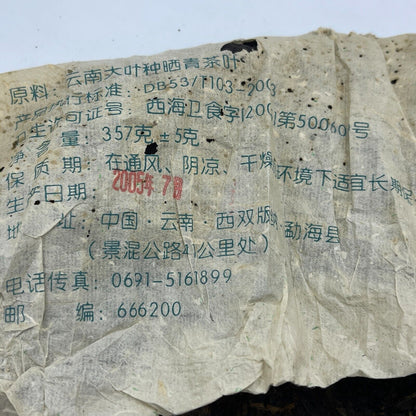 原料: 云南大叶种晒青茶叶
行标准: DB53/T103-200
生许可证号: 西海卫食字[200 第50060号
量: 357克±5克
保质期: 在通风、阴凉、干燥环境下适宜长
生 日期: 2005年7月
址: 中国·云南 西双版 勐海县
(景混公路4 公里处)
电话传真: 0691-5161899
邮编: 666200